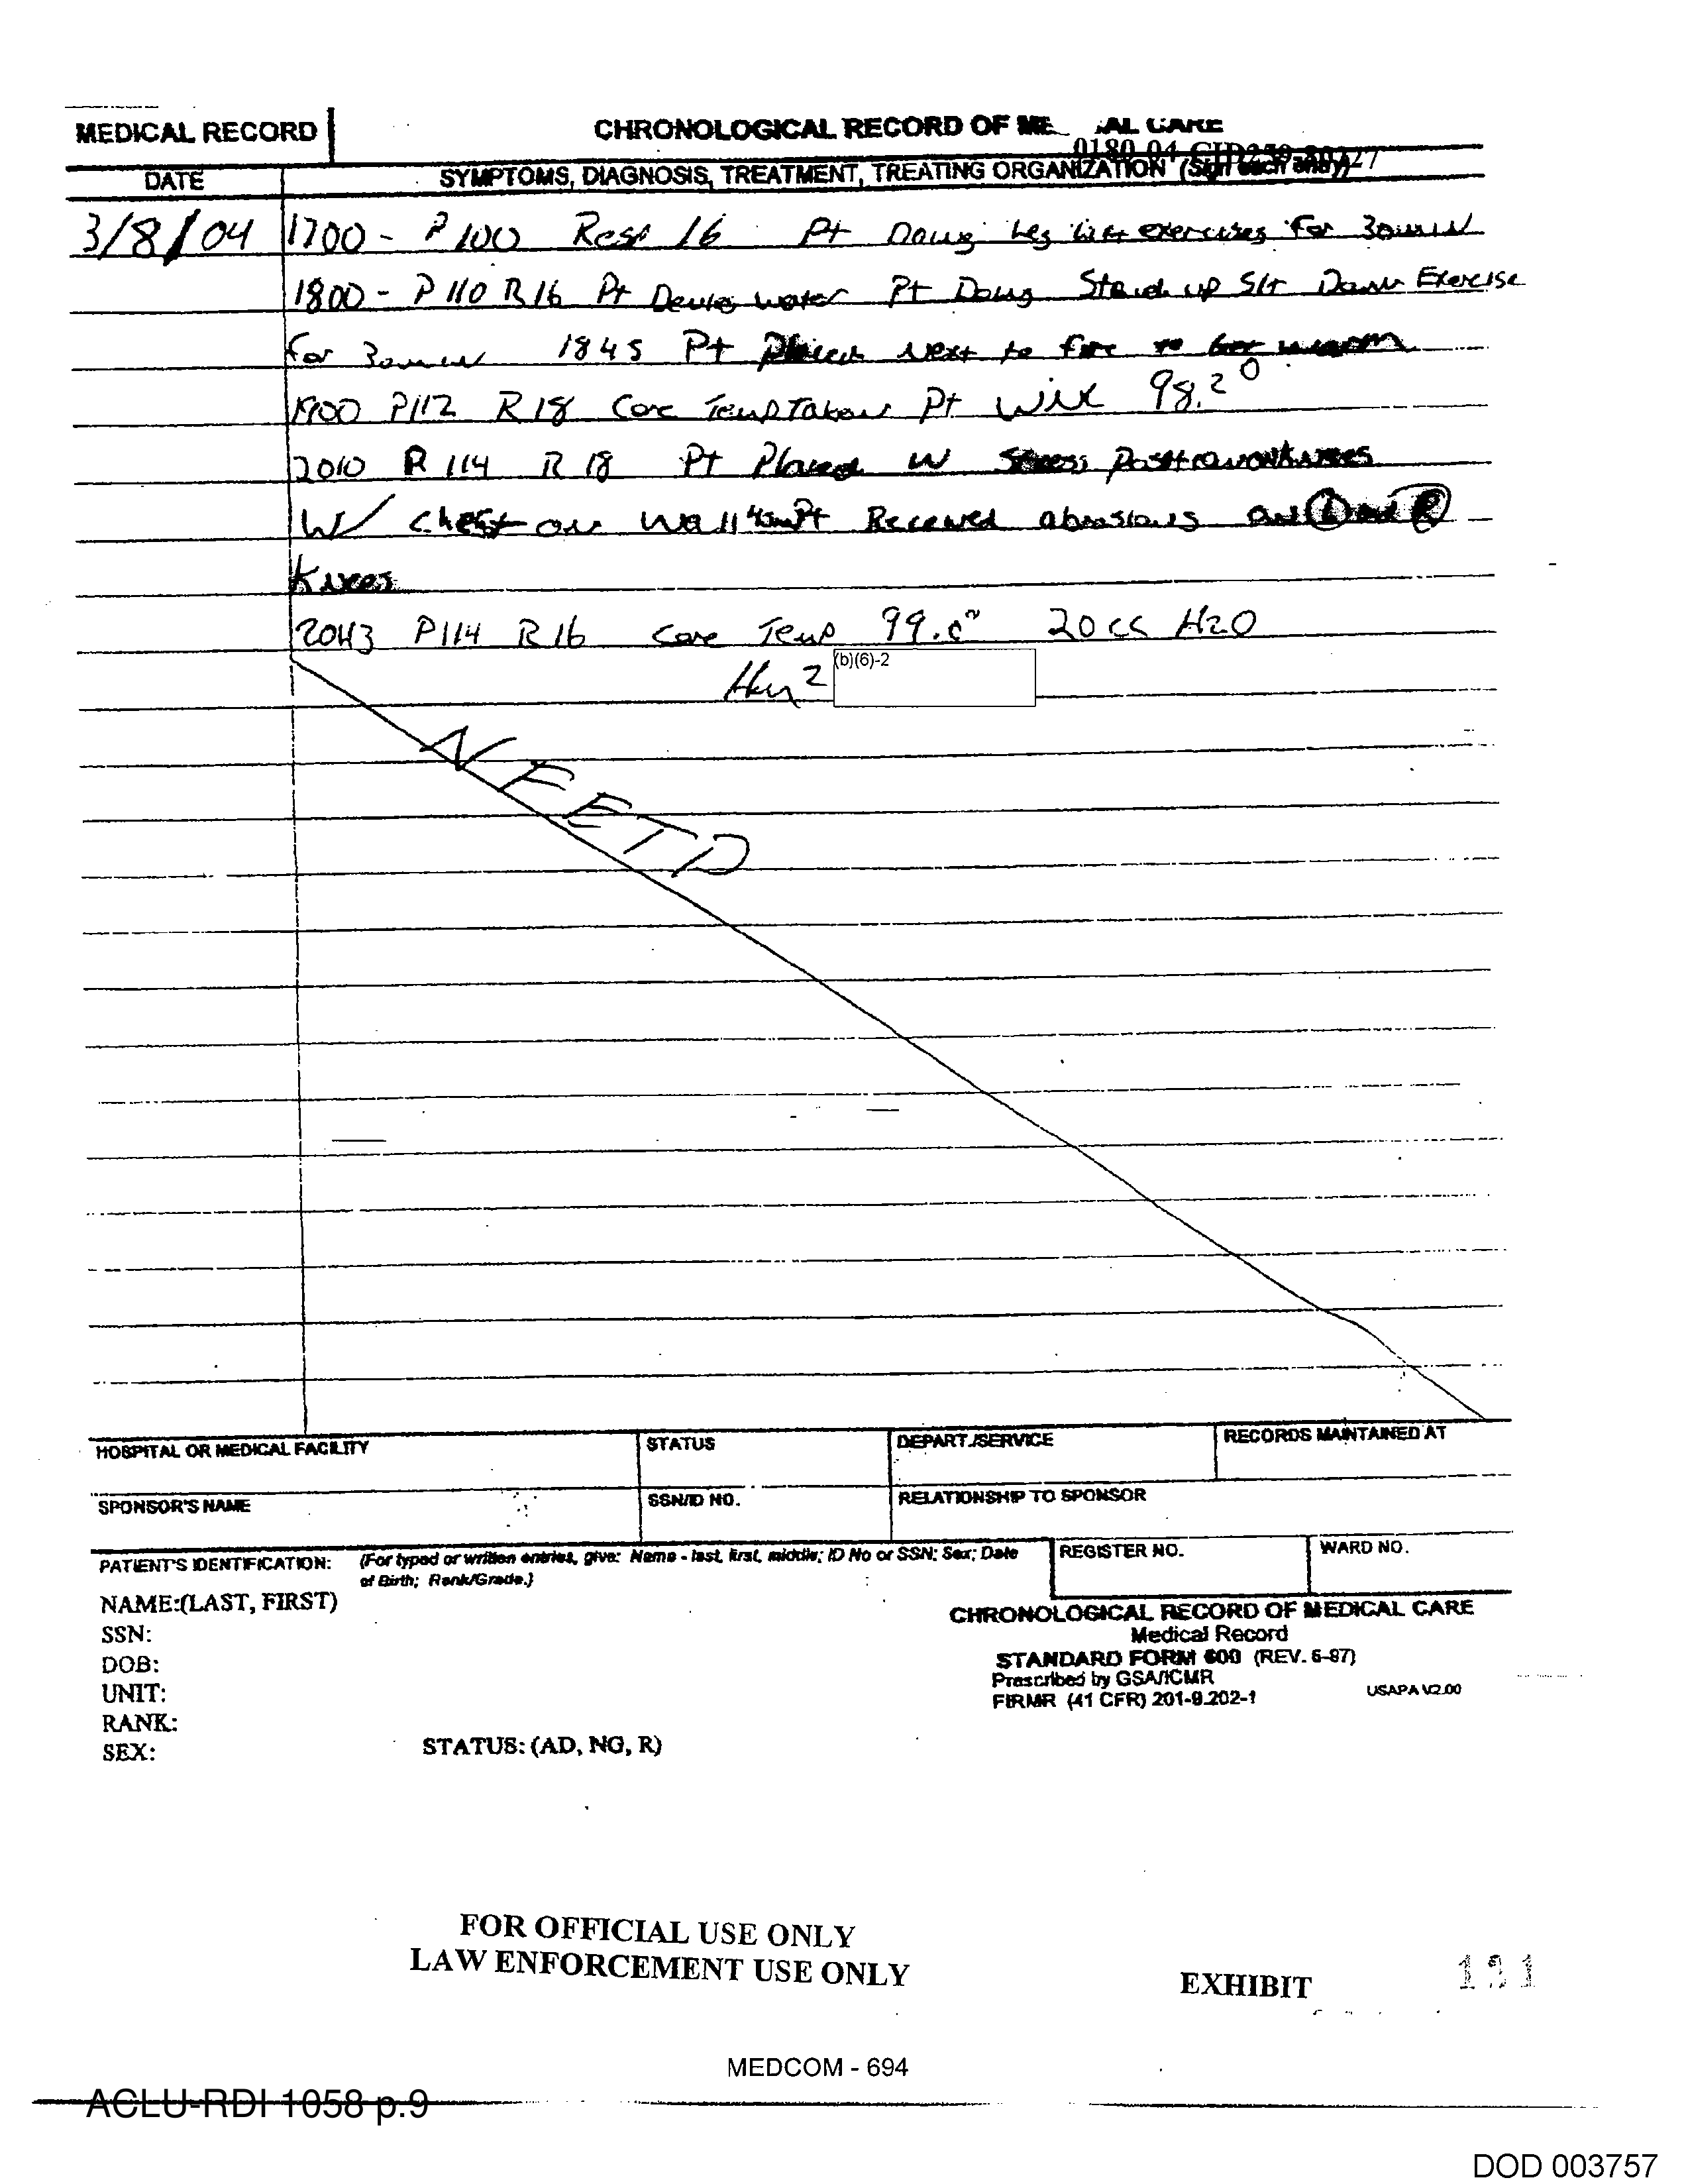 MEDICAL RECORD
CHRONOLOGICAL RECORD OF ME AL CARE
0180 04 CID259 80227
DATE
SYMPTOMS, DIAGNOSIS, TREATMENT, TREATING ORGANIZATION (Sign each entry)
3/8/04 1700 - P 100 Resp 16 Pt Doing Leg Lift exercises for 30min
1800 - P 110 R 16 Pt water Pt Doing Stand up Sit Down Exercise
for 30min 1845 Pt Placed Next to fire to get warm
1900 P112 R18 Core Temp Taken Pt 98.2°
2010 R 114 R 18 Pt Placed in Stress Position on Knees
W/ chest on wall 45min Pt Received abrasions on L and R
Knees
2043 P114 R16 Core Temp 20cc H2O
(b)(6)-2
HOSPITAL OR MEDICAL FACILITY
STATUS
DEPART./SERVICE
RECORDS MAINTAINED AT
SPONSOR'S NAME
SSN/ID NO.
RELATIONSHIP TO SPONSOR
PATIENT'S IDENTIFICATION: (For typed or written entries, give: Name - last, first, middle; ID No or SSN; Sex; Date
of Birth; Rank/Grade.)
REGISTER NO.
WARD NO.
NAME:(LAST, FIRST)
SSN:
DOB:
UNIT:
RANK:
SEX:
STATUS: (AD, NG, R)
CHRONOLOGICAL RECORD OF MEDICAL CARE
Medical Record
STANDARD FORM 600 (REV. 6-97)
Prescribed by GSA/ICMR
FIRMR (41 CFR) 201-9.202-1
USAPA V2.00
FOR OFFICIAL USE ONLY
LAW ENFORCEMENT USE ONLY
EXHIBIT
MEDCOM - 694
ACLU-RDI 1058 p.9
DOD 003757